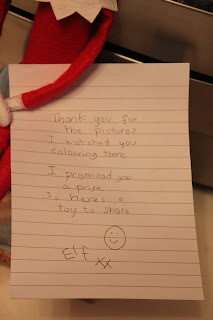 Thank you for
the pictures
I watched you
colouring there
I promised you
a prize
So here's a
toy to share
Elf xx